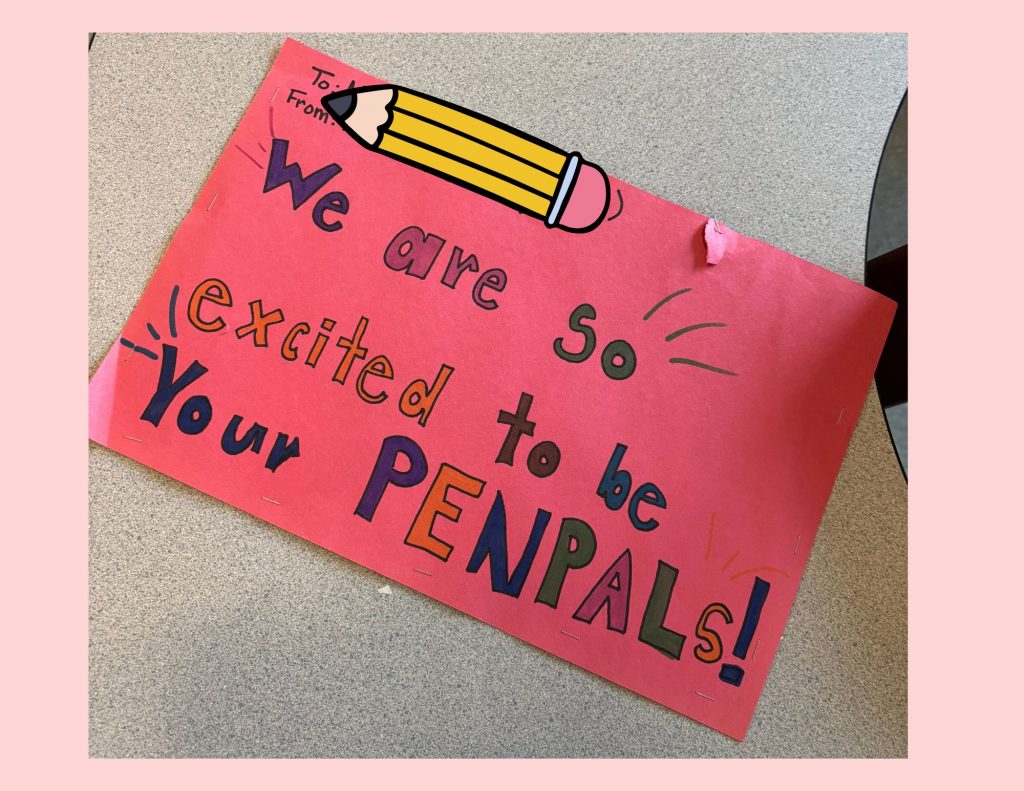 To:
From:
We are so
excited to be
Your PENPALS!